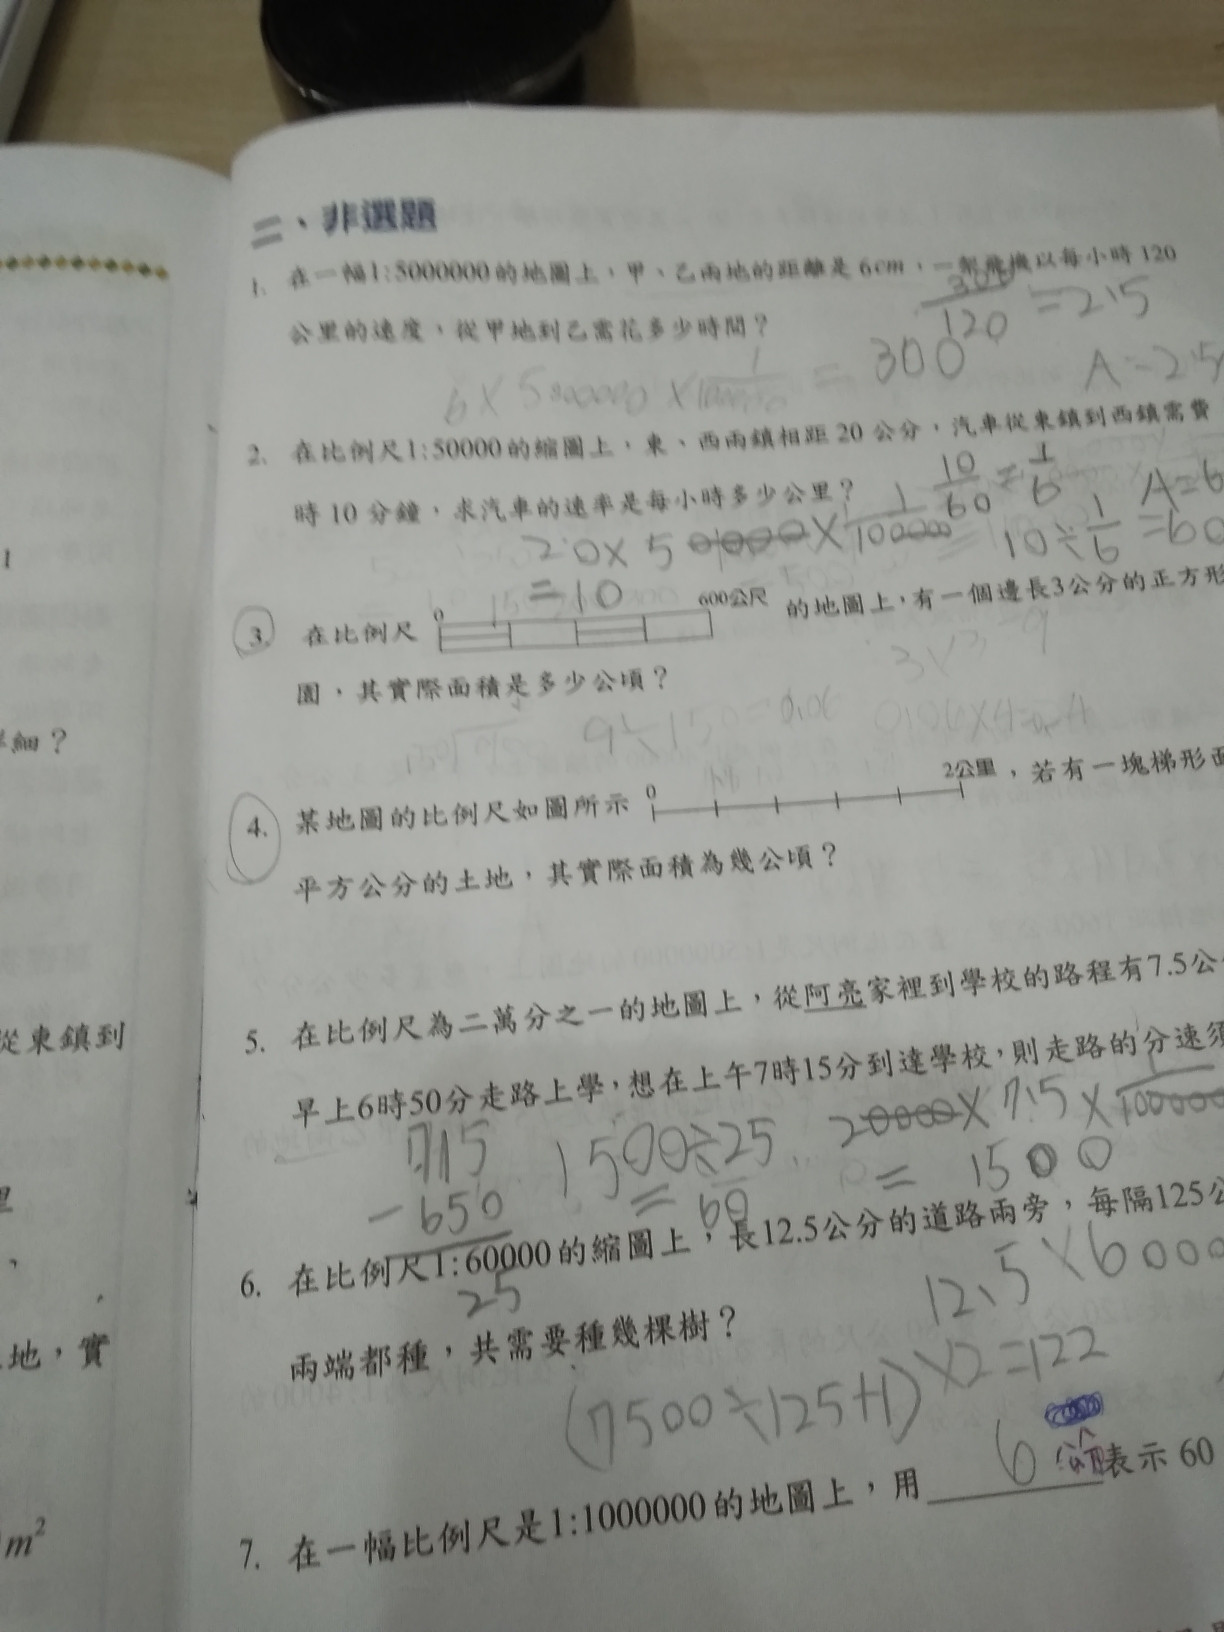 二、非選題
1. 在一幅1:5000000的地圖上，甲、乙兩地的距離是6cm，一架飛機以每小時120
公里的速度，從甲地到乙需花多少時間？
120 = 2.5
6 × 5000000 × 1 = 300
A = 2.5
2. 在比例尺1:50000的縮圖上，東、西兩鎮相距20公分，汽車從東鎮到西鎮需費
時10分鐘，求汽車的速率是每小時多少公里？
10/60 = 1/6
A=6
20×50000×1/100000
10÷1/6=60
=10
0 600公尺
3. 在比例尺 的地圖上，有一個邊長3公分的正方形
3×3=9
園，其實際面積是多少公頃？
9÷150=0.06
0 2公里
4. 某地圖的比例尺如圖所示 ，若有一塊梯形面
平方公分的土地，其實際面積為幾公頃？
5. 在比例尺為二萬分之一的地圖上，從阿亮家裡到學校的路程有7.5公
早上6時50分走路上學，想在上午7時15分到達學校，則走路的分速須
715
-650
25
1500÷25
=60
20000×7.5×1/100000
=1500
6. 在比例尺1:60000的縮圖上，長12.5公分的道路兩旁，每隔125公
12.5×6000
兩端都種，共需要種幾棵樹？
(7500÷125+1)×2=122
7. 在一幅比例尺是1:1000000的地圖上，用 6 表示 60
1
詳細？
從東鎮到
里
、
土地，實
m²